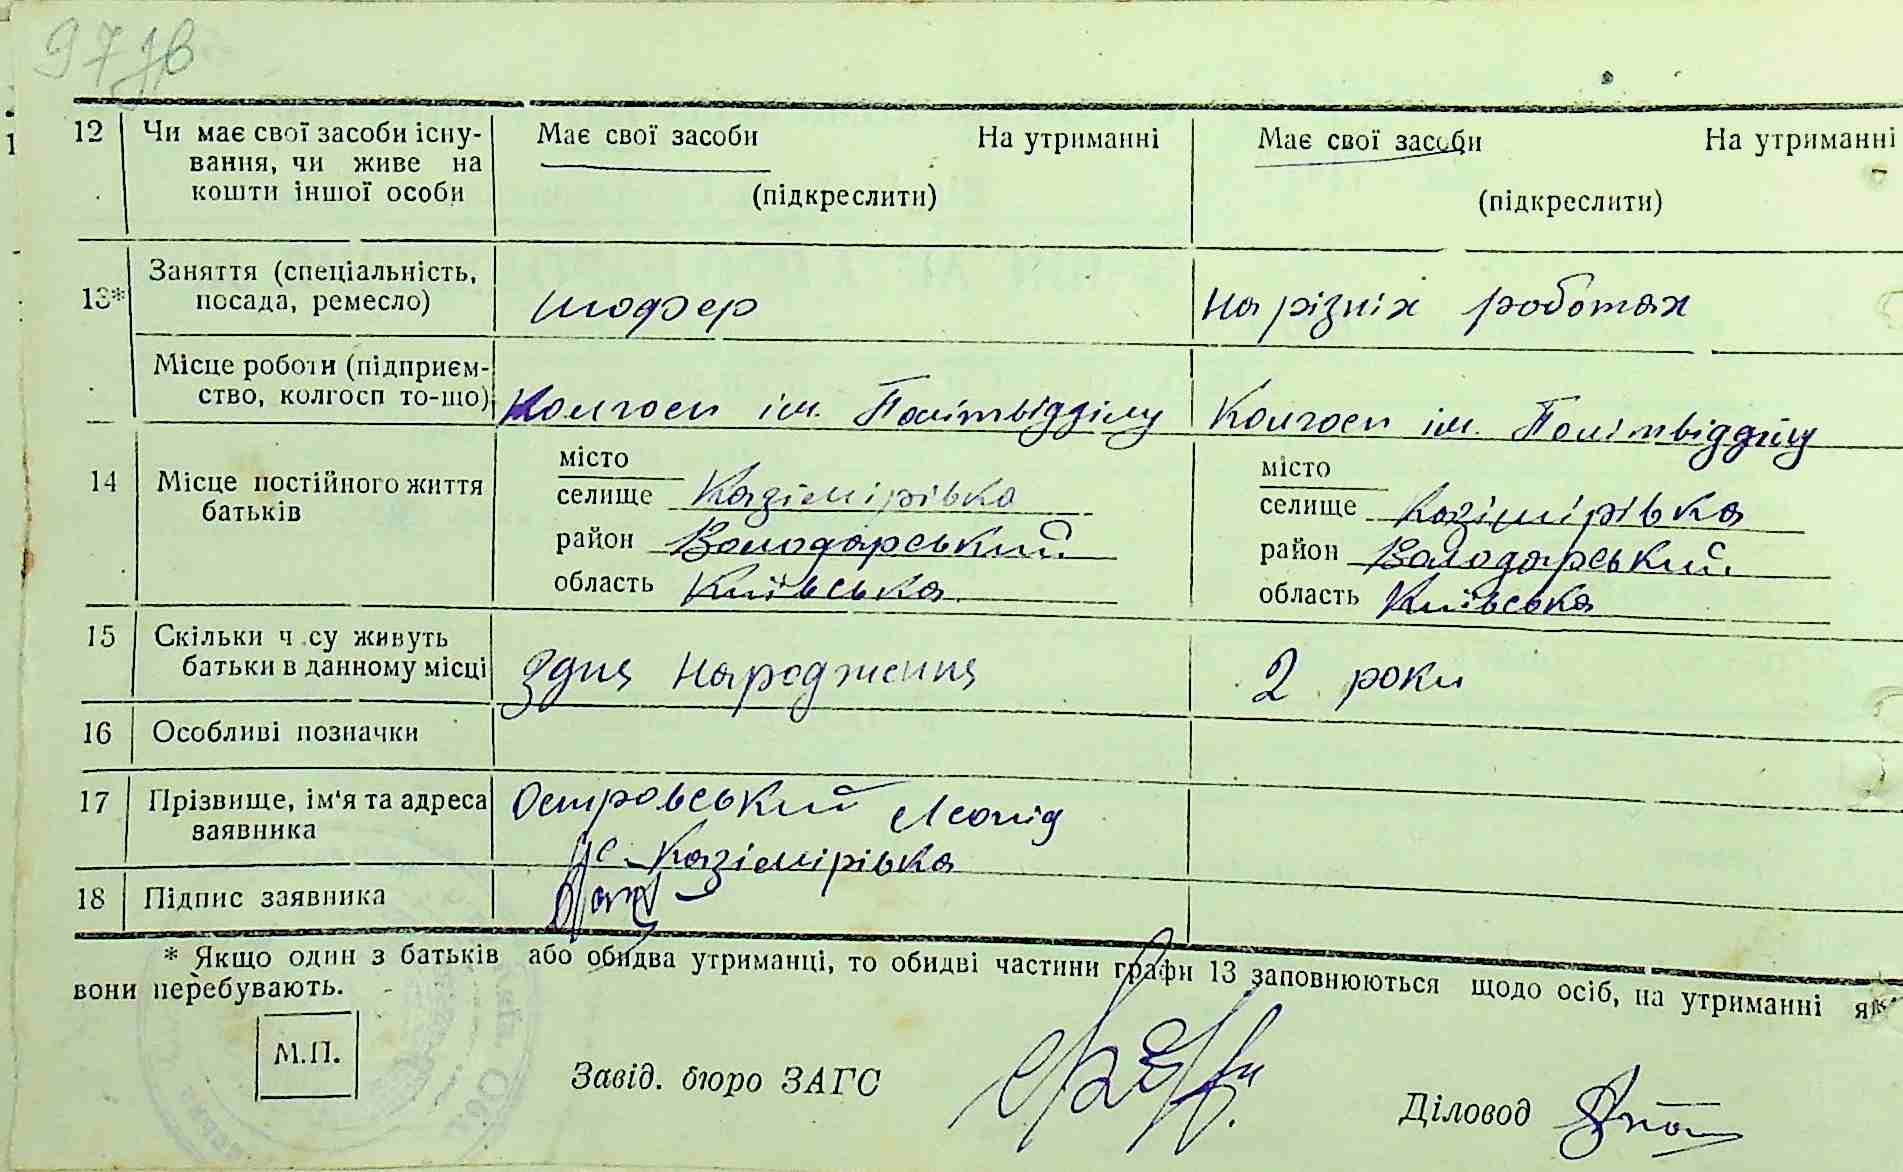 97
1
12 Чи має свої засоби існу- Має свої засоби На утриманні Має свої засоби На утриманні
вання, чи живе на
кошти іншої особи (підкреслити) (підкреслити)
13* Заняття (спеціальність,
посада, ремесло) шофер На різніх роботах
Місце роботи (підприєм-
ство, колгосп то-що) Колгосп ім. Політвідділу Колгосп ім. Політвідділу
14 Місце постійного життя місто місто
батьків селище Казімірівка селище Казімірівка
район Володарський район Володарський
область Київська область Київська
15 Скільки ч су живуть
батьки в данному місці Здня народження 2 роки
16 Особливі позначки
17 Прізвище, ім'я та адреса Островський Леонід
заявника с. Казімірівка
18 Підпис заявника
* Якщо один з батьків або обидва утриманці, то обидві частини графи 13 заповнюються щодо осіб, на утриманні як
вони перебувають.
М.П.
Завід. бюро ЗАГС
Діловод